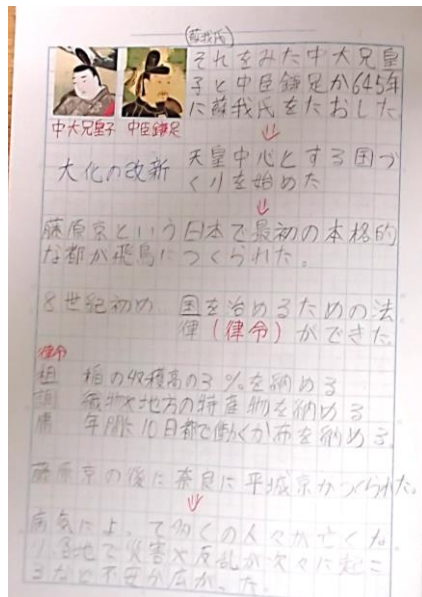 (蘇我氏)
それをみた中大兄皇
子と中臣鎌足が645年
に蘇我氏をたおした
中大兄皇子 中臣鎌足
⇓
大化の改新 天皇中心とする国づ
くりを始めた
⇓
藤原京という日本で最初の本格的
な都が飛鳥につくられた。
8世紀初め 国を治めるための法
律(律令)ができた。
律令
租 稲の収穫高の3%を納める
調 織物や地方の特産物を納める
庸 年間に10日都で働くか布を納める
藤原京の後に奈良に平城京がつくられた。
⇓
病気によって多くの人々が亡くな
り各地で災害や反乱が次々に起こ
るなど不安が広がった。